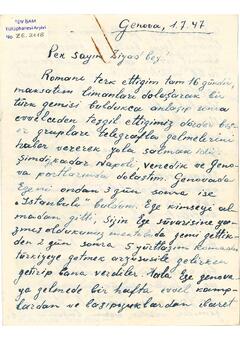 TDV İSAM
Kütüphanesi Arşivi
No ZE. 2118
Genova, 1.7.47
Pek sayın Ziyad bey!
Romanı terk ettiğim tam 16 gündür,
maksatım limanları dolaşarak bir
türk gemisi buldukca anlaşıp sonra
evvelceden tezgil ettiğimiz dörder beşer
er grupları telegrafla gelmelerini
haber vererek yola salmak idi
Şimdiyekadar Napoli, venedik ve Geno-
va portlarında dolaştım. Genovada
Egemi ondan 3 gün sonra ise
"Istanbulu" buldum. Ege kimseyi al
madan gitti, Sizin Ege süvarisine ya-
zmış olduğunuz mektubda gemi gettik-
den 2 gün sonra 5 yurttaşım Romadan
türkiyeye getmek arzususile gelirken
getirip bana verdiler. Hala Ege Genova
ya gelmede bir hafta evvel kamp-
lardan ve